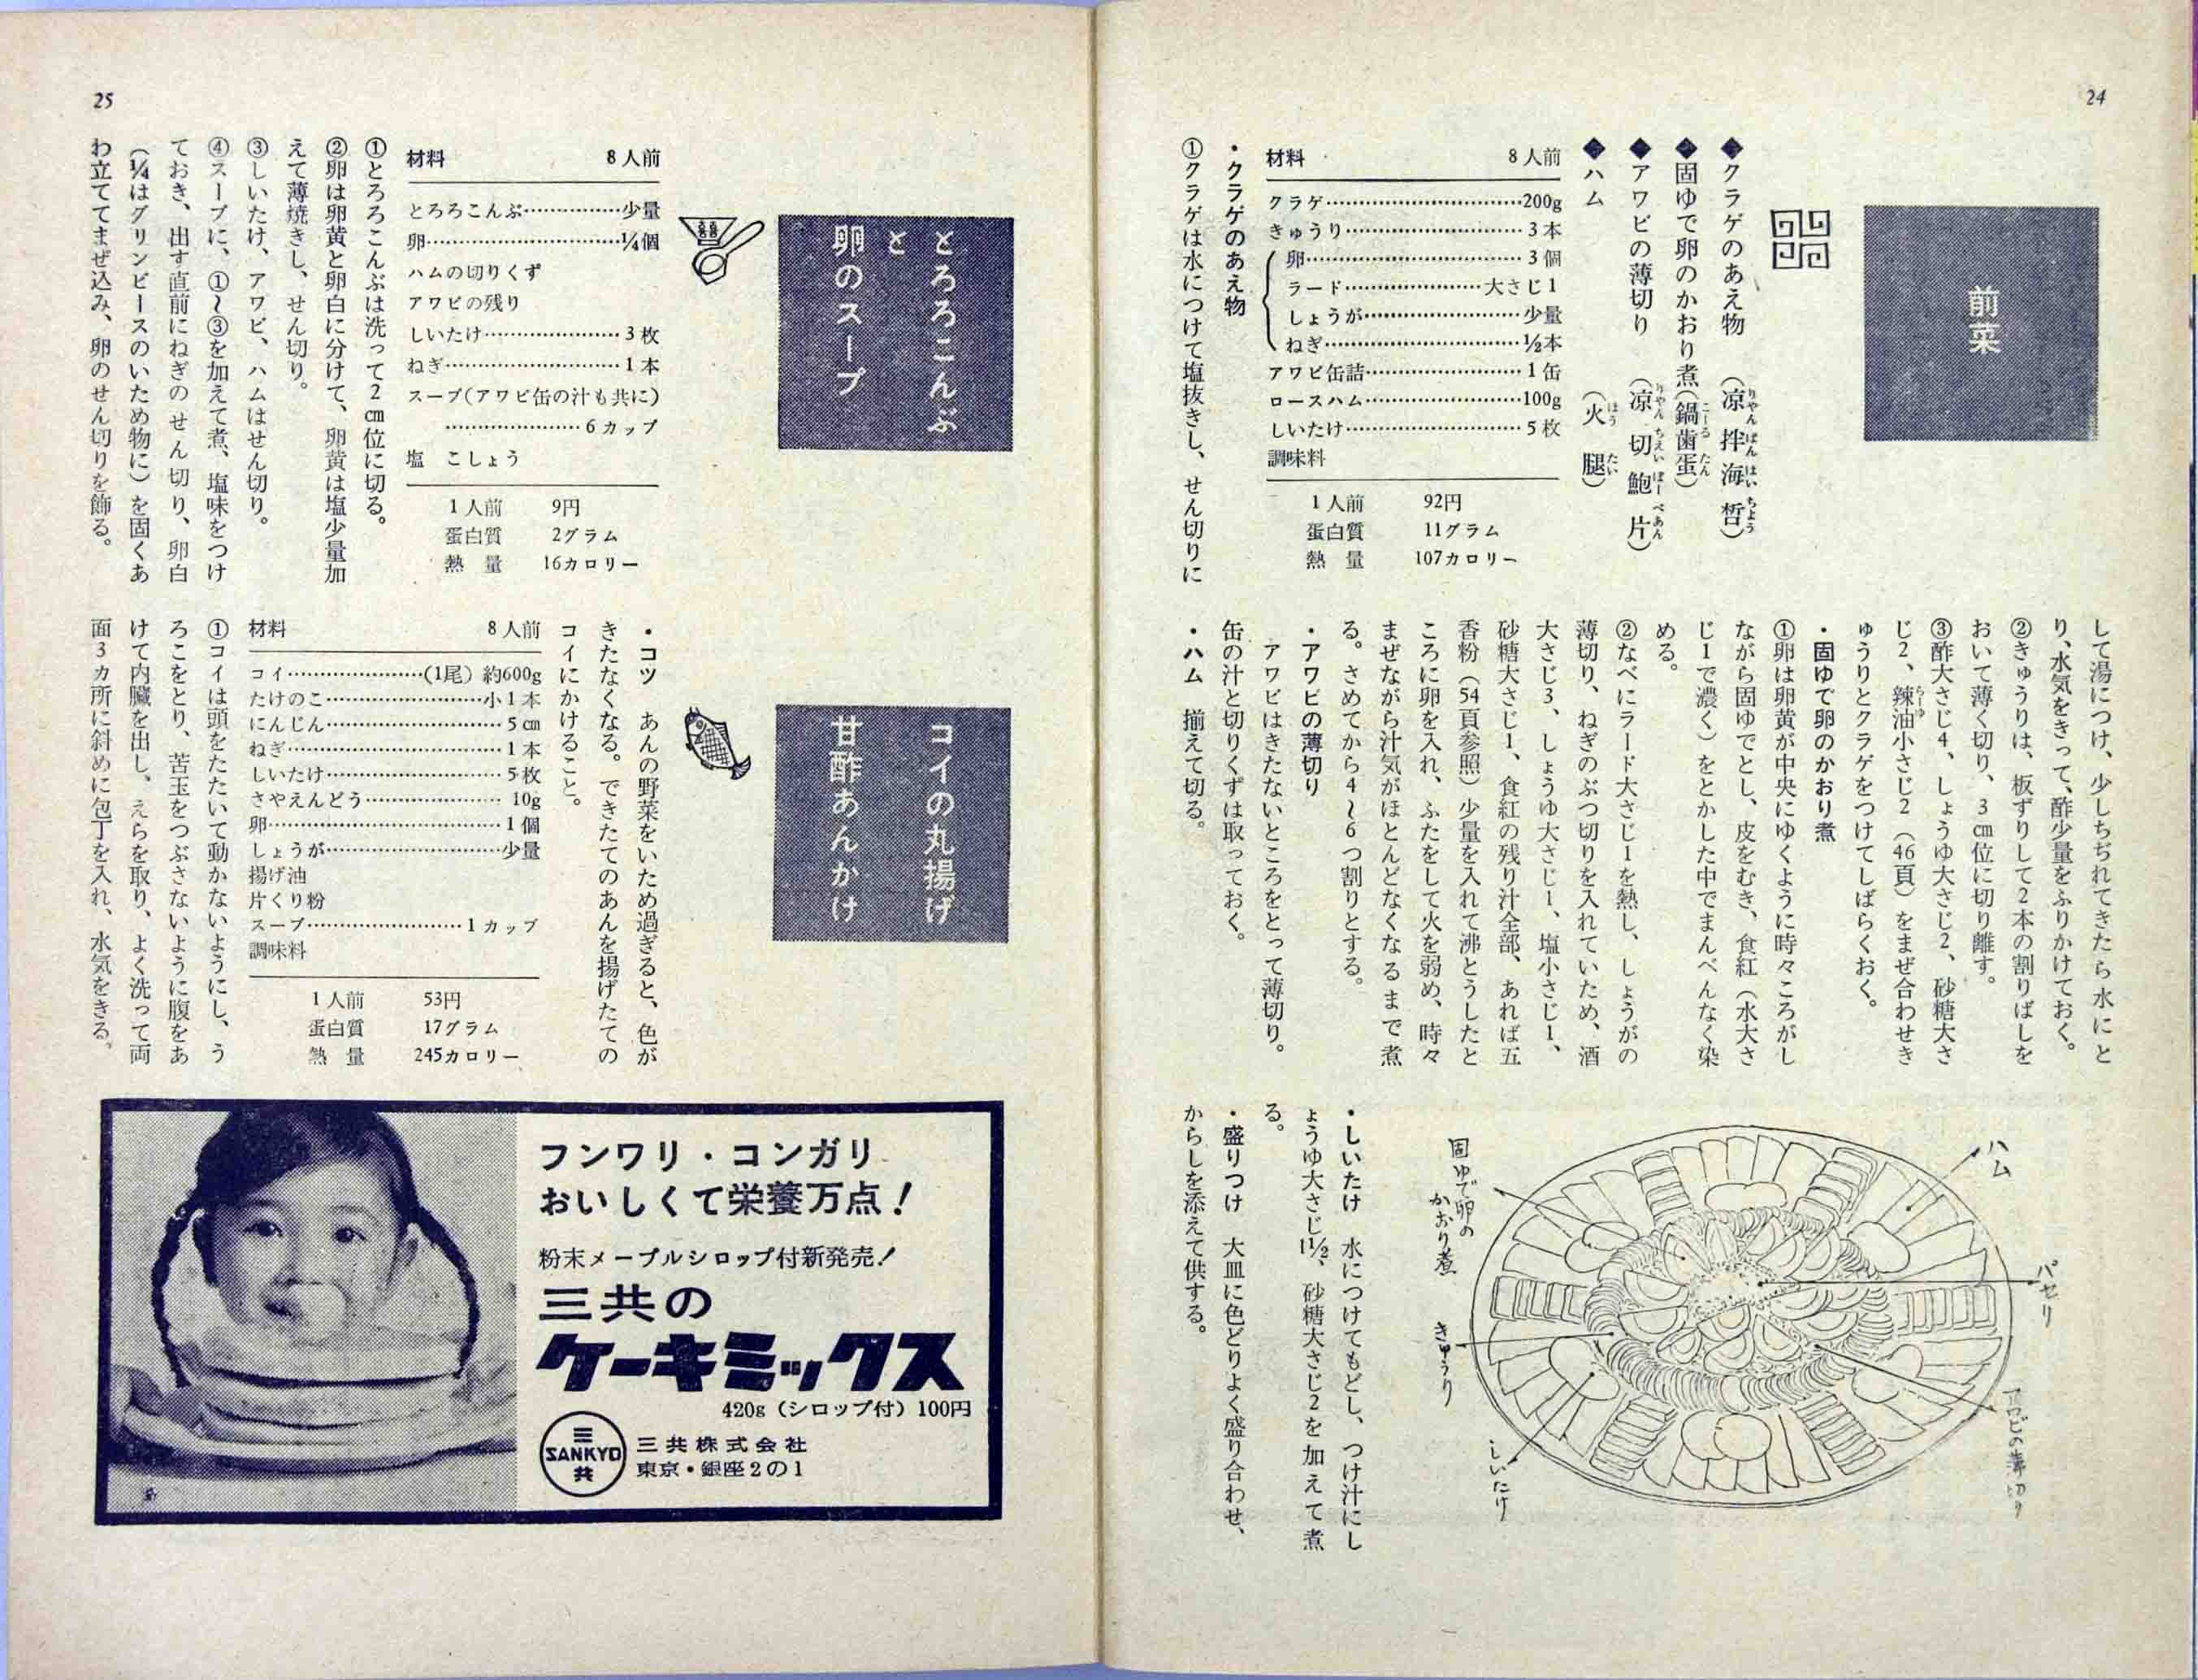 24
前菜
◆クラゲのあえ物 (凉拌海哲)
りやん ぱん はい ちよう
◆固ゆで卵のかおり煮(鍋歯蛋)
こーる たん
◆アワビの薄切り (凉切鮑片)
りやん ちえい ぱー ぺあん
◆ハム (火腿)
ほう たい
材料 8人前
クラゲ……200g
きゅうり……3本
卵……3個
ラード……大さじ1
しょうが……少量
ねぎ……½本
アワビ缶詰……1缶
ロースハム……100g
しいたけ……5枚
調味料
1人前 92円
蛋白質 11グラム
熱量 107カロリー
・クラゲのあえ物
①クラゲは水につけて塩抜きし、せん切りに
して湯につけ、少しちぢれてきたら水にと
り、水気をきって、酢少量をふりかけておく。
②きゅうりは、板ずりして2本の割りばしを
おいて薄く切り、3㎝位に切り離す。
③酢大さじ4、しょうゆ大さじ2、砂糖大さ
じ2、辣油小さじ2(46頁)をまぜ合わせき
らーゆ
ゅうりとクラゲをつけてしばらくおく。
・固ゆで卵のかおり煮
①卵は卵黄が中央にゆくように時々ころがし
ながら固ゆでとし、皮をむき、食紅(水大さ
じ1で濃く)をとかした中でまんべんなく染
める。
②なべにラード大さじ1を熱し、しょうがの
薄切り、ねぎのぶつ切りを入れていため、酒
大さじ3、しょうゆ大さじ1、塩小さじ1、
砂糖大さじ1、食紅の残り汁全部、あれば五
香粉(54頁参照)少量を入れて沸とうしたと
ころに卵を入れ、ふたをして火を弱め、時々
まぜながら汁気がほとんどなくなるまで煮
る。さめてから4〜6つ割りとする。
・アワビの薄切り
アワビはきたないところをとって薄切り。
缶の汁と切りくずは取っておく。
・ハム 揃えて切る。
ハム
パセリ
アワビの薄切り
固ゆで卵の
かおり煮
きゅうり
しいたけ
・しいたけ 水につけてもどし、つけ汁にし
ょうゆ大さじ1½、砂糖大さじ2を加えて煮
る。
・盛りつけ 大皿に色どりよく盛り合わせ、
からしを添えて供する。
25
とろろこんぶ
と
卵のスープ
材料 8人前
とろろこんぶ……少量
卵……¼個
ハムの切りくず
アワビの残り
しいたけ……3枚
ねぎ……1本
スープ(アワビ缶の汁も共に)
……6カップ
塩 こしょう
1人前 9円
蛋白質 2グラム
熱量 16カロリー
①とろろこんぶは洗って2㎝位に切る。
②卵は卵黄と卵白に分けて、卵黄は塩少量加
えて薄焼きし、せん切り。
③しいたけ、アワビ、ハムはせん切り。
④スープに、①〜③を加えて煮、塩味をつけ
ておき、出す直前にねぎのせん切り、卵白
(¼はグリンピースのいため物に)を固くあ
わ立ててまぜ込み、卵のせん切りを飾る。
コイの丸揚げ
甘酢あんかけ
・コツ あんの野菜をいため過ぎると、色が
きたなくなる。できたてのあんを揚げたての
コイにかけること。
材料 8人前
コイ……(1尾)約600g
たけのこ……小1本
にんじん……5㎝
ねぎ……1本
しいたけ……5枚
さやえんどう……10g
卵……1個
しょうが……少量
揚げ油
片くり粉
スープ……1カップ
調味料
1人前 53円
蛋白質 17グラム
熱量 245カロリー
①コイは頭をたたいて動かないようにし、う
ろこをとり、苦玉をつぶさないように腹をあ
けて内臓を出し、えらを取り、よく洗って両
面3カ所に斜めに包丁を入れ、水気をきる。
フンワリ・コンガリ
おいしくて栄養万点!
粉末メープルシロップ付新発売!
三共の
ケーキミックス
420g(シロップ付)100円
三
SANKYO
共
三共株式会社
東京・銀座2の1